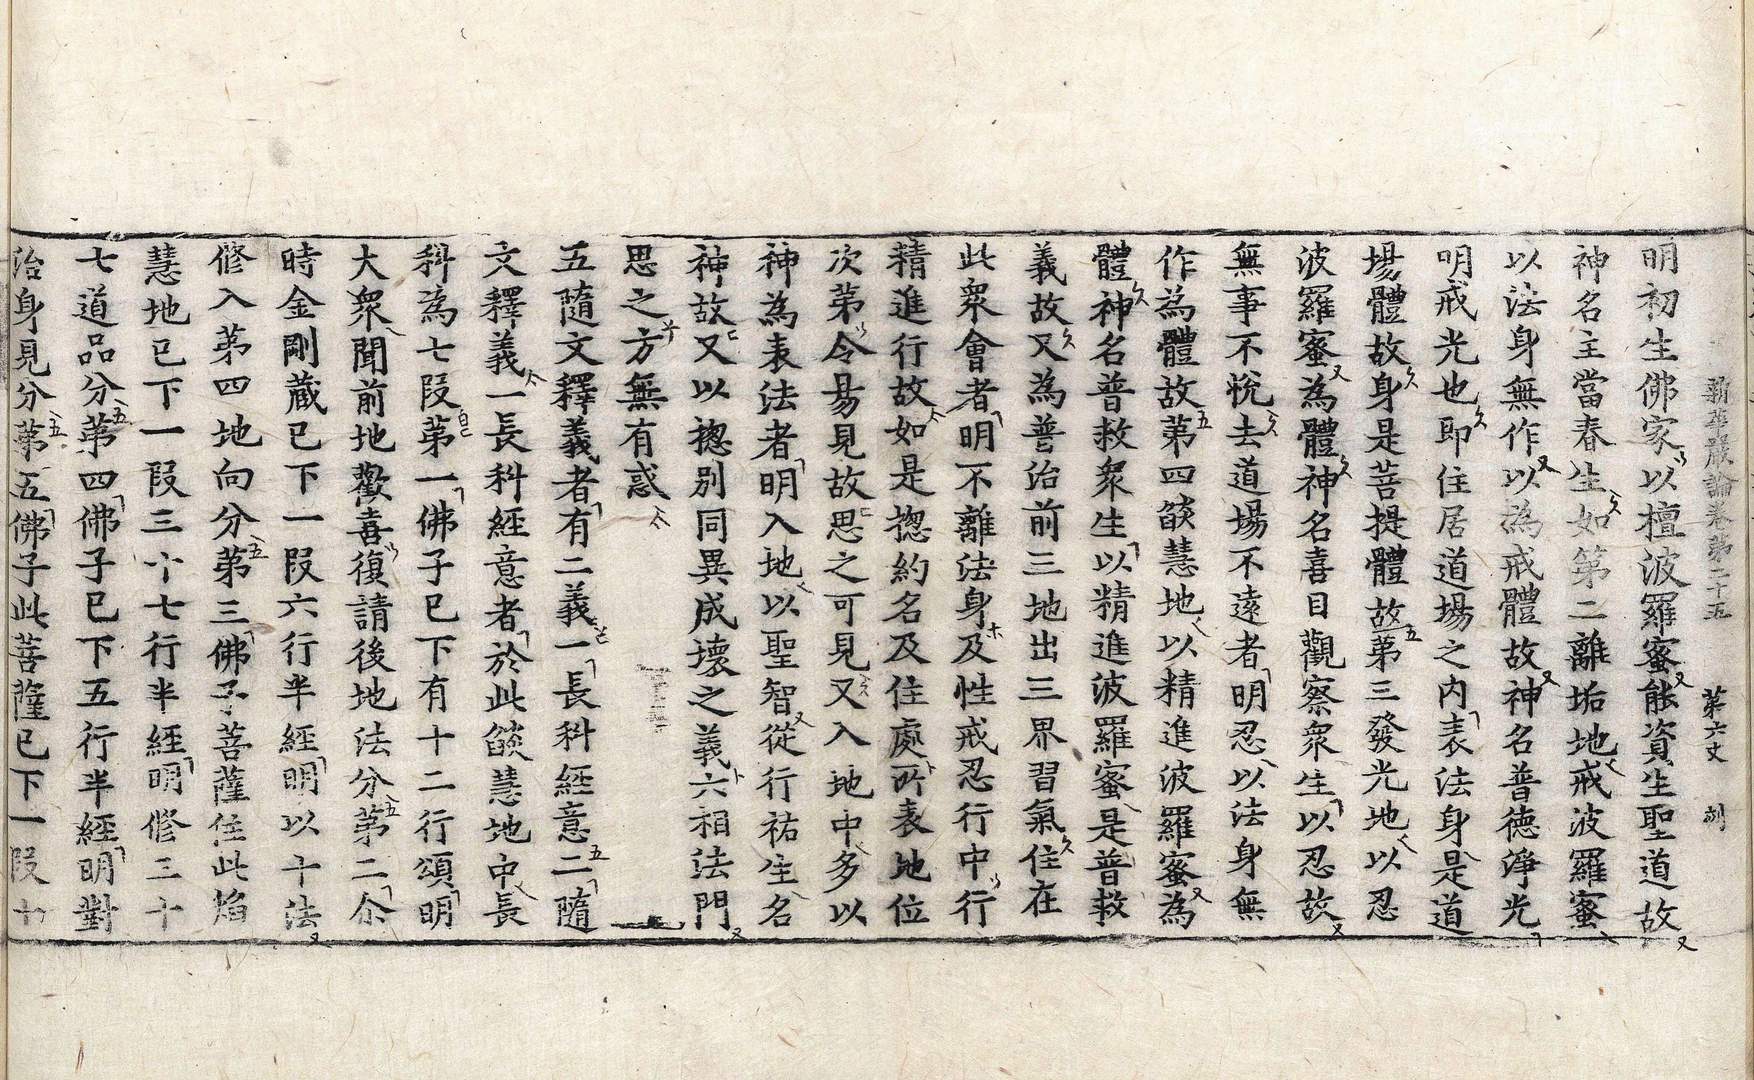 新華嚴論卷第二十五　第六丈
明初生佛家以檀波羅蜜能資生聖道故
神名主當春生如第二離垢地戒波羅蜜
以法身無作以為戒體故神名普德淨光
明戒光也即住居道場之內表法身是道
場體故身是菩提體故第三發光地以忍
波羅蜜為體神名喜目觀察眾生以忍故
無事不悅去道場不遠者明忍以法身無
作為體故第四燄慧地以精進波羅蜜為
體神名普救眾生以精進波羅蜜是普救
義故又為普治前三地出三界習氣住在
此衆會者明不離法身及性戒忍行中行
精進行故如是揔約名及住處所表地位
次苐令易見故思之可見又入地中多以
神為表法者明入地以聖智從行祐生名
神故又以揔別同異成壞之義六相法門
思之方無有惑
五隨文釋義者有二義一長科經意二隨
文釋義一長科經意者於此燄慧地中長
科為七段第一佛子已下有十二行頌明
大衆聞前地歡喜復請後地法分第二尒
時金剛藏已下一段六行半經明以十法
修入苐四地向分第三佛子菩薩住此焰
慧地已下一段三个七行半經明修三十
七道品分第四佛子已下五行半經明對
治身見分第五佛子此菩薩已下一段十